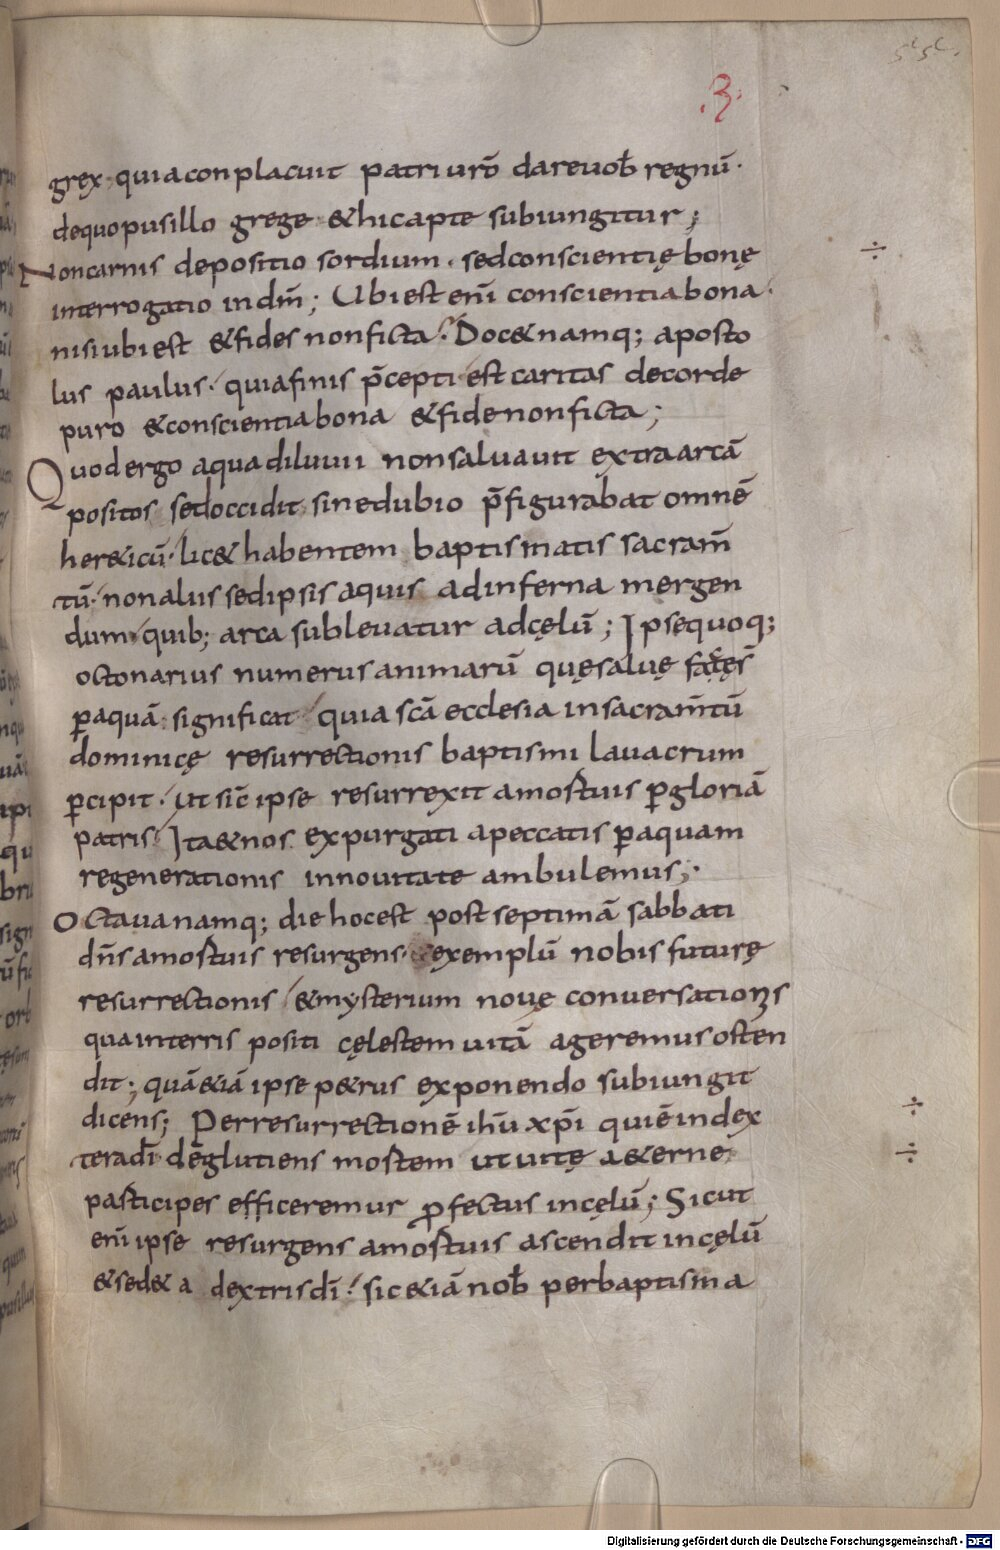 .3.
grex· quia conplacuit patri uro̅ dare uob̅ regnu̅·
de quo pusillo grege & hic apte subiungitur;
Non carnis depositio sordium· sed conscientię bonę
interrogatio in dm̅; Ubi est eni̅ conscientia bona·
nisi ubi est & fides non ficta? Doc& namq; aposto
lus paulus· quia finis p̅cepti est caritas de corde
puro & conscientia bona & fide non ficta;
Quod ergo aqua diluuii non saluauit extra arca̅
positos sed occidit· sine dubio p̅figurabat omne̅
her&icu̅· lic& habentem baptismatis sacram̅
tu̅· non aliis sed ipsis aquis ad inferna mergen
dum· quib; arca subleuatur ad cęlu̅; Ipse quoq;
octonarius numerus animaru̅ quę saluę
p̲ aqua̅· significat quia sca̅ ecclesia in sacram̅tu̅
dominicę resurrectionis baptismi lauacrum
p̲cipit· Ut sic̅ ipse resurrexit a mortuis p̲ gloria̅
patris· Ita & nos expurgati a peccatis p̲ aquam
regenerationis in nouitate ambulemus;·
Octaua namq; die hoc est post septima̅ sabbati
dn̅s a mortuis resurgens· exemplu̅ nobis futurę
resurrectionis & mysterium nouę conuersationis
qua in terris positi cęlestem uita̅ ageremus osten
dit; qua̅ & ia̅ ipse p&rus exponendo subiungit
dicens; Per resurrectione̅ ih̅u xp̅i qui e̅ in dex
tera di̅ deglutiens mortem ut uitę a&ernę
participes efficeremur profectus in cęlu̅; Sicut
eni̅ ipse resurgens a mortuis ascendit in cęlu̅
& sed& a dextris di̅· sic & ia̅ nob̅ per baptisma
÷
÷
÷
Digitalisierung gefördert durch die Deutsche Forschungsgemeinschaft - DFG